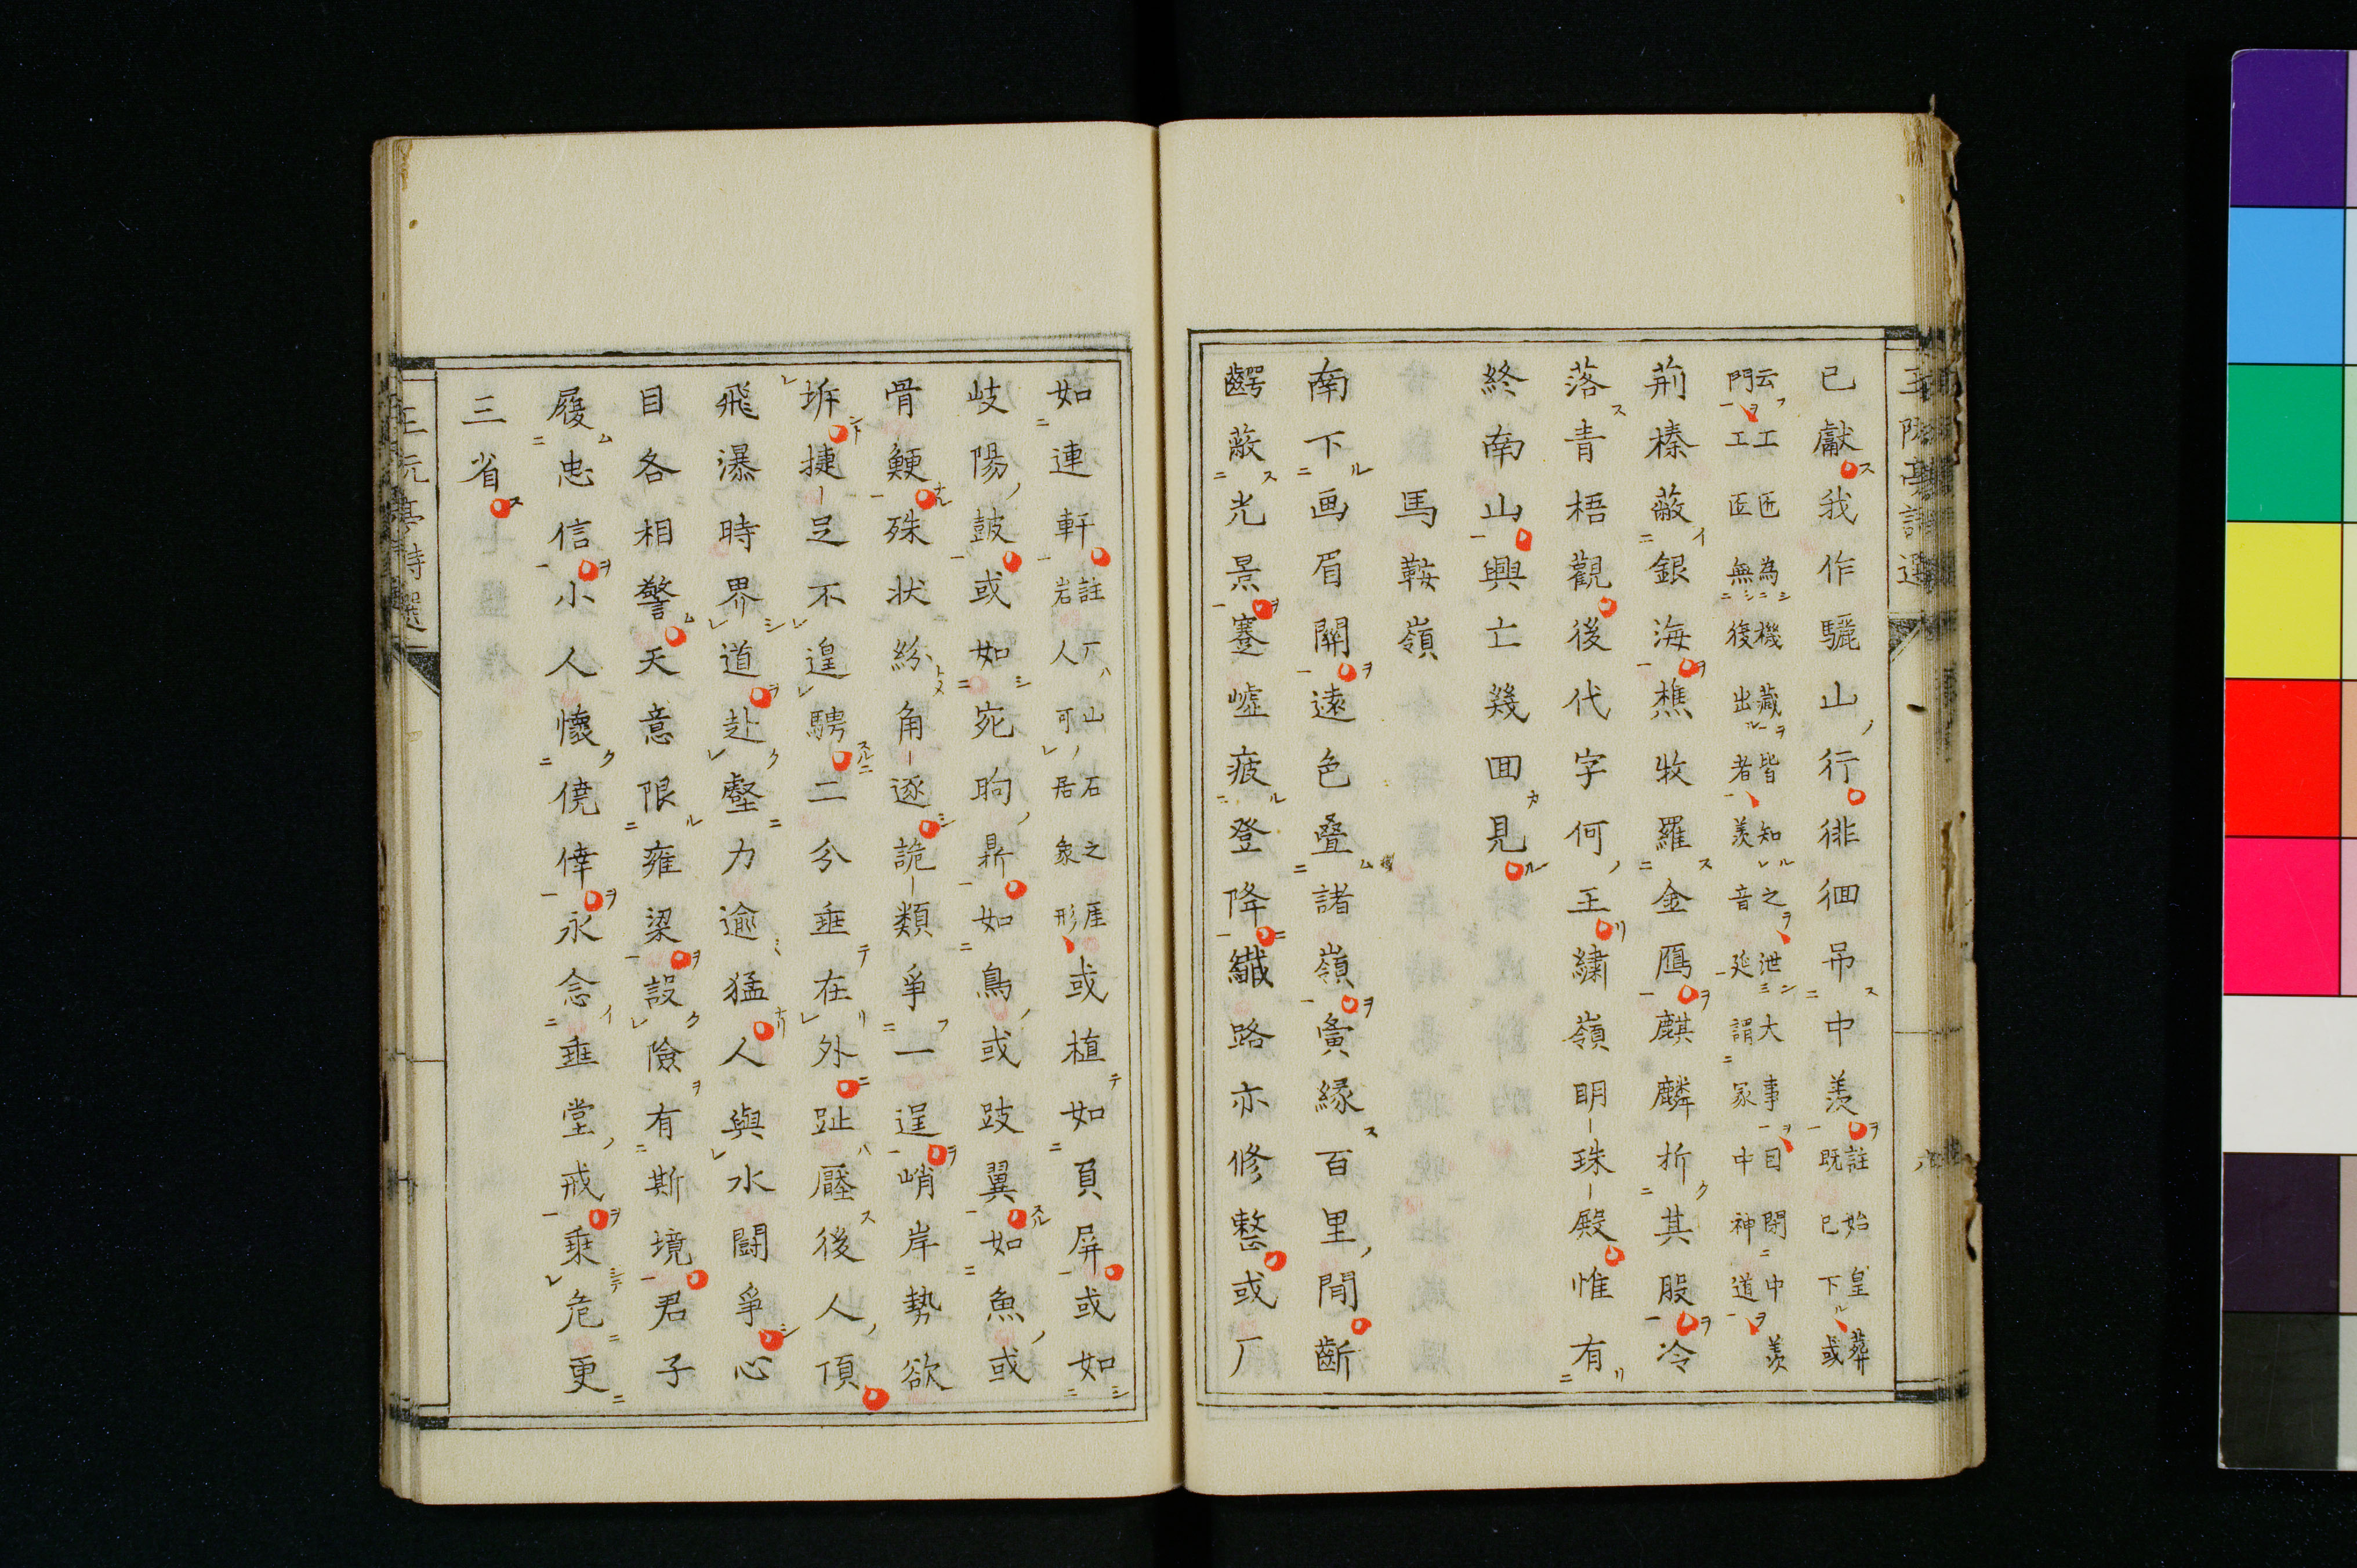 王阮亭詩選
已獻我作驪山行徘徊吊中羨註始皇葬
既已下或
云工匠為機藏皆知之泄大事目閉中羨
門工匠無後出者羨音延謂冢中神道
荊榛蔽銀海樵牧羅金鴈麒麟折其股冷
落青梧觀後代字何王繡嶺明珠殿惟有
終南山興亡幾回見
馬鞍嶺
南下画眉關遠色疊諸嶺夤縁百里間斷
齶蔽光景蹇嘘疲登降纎路亦修整或厂
如連軒註厂山石之厓
岩人可居象形或植如負屏或如
岐陽鼓或如宛昫鼎如鳥或跂翼如魚或
骨鯁殊状紛角逐詭類爭一逞峭岸勢欲
坼捷足不遑騁二分垂在外趾壓後人頂
飛瀑時界道赴壑力逾猛人與水鬪爭心
目各相警天意限雍梁設險有斯境君子
履忠信小人懷僥倖永念垂堂戒乗危更
三省
王阮亭詩選